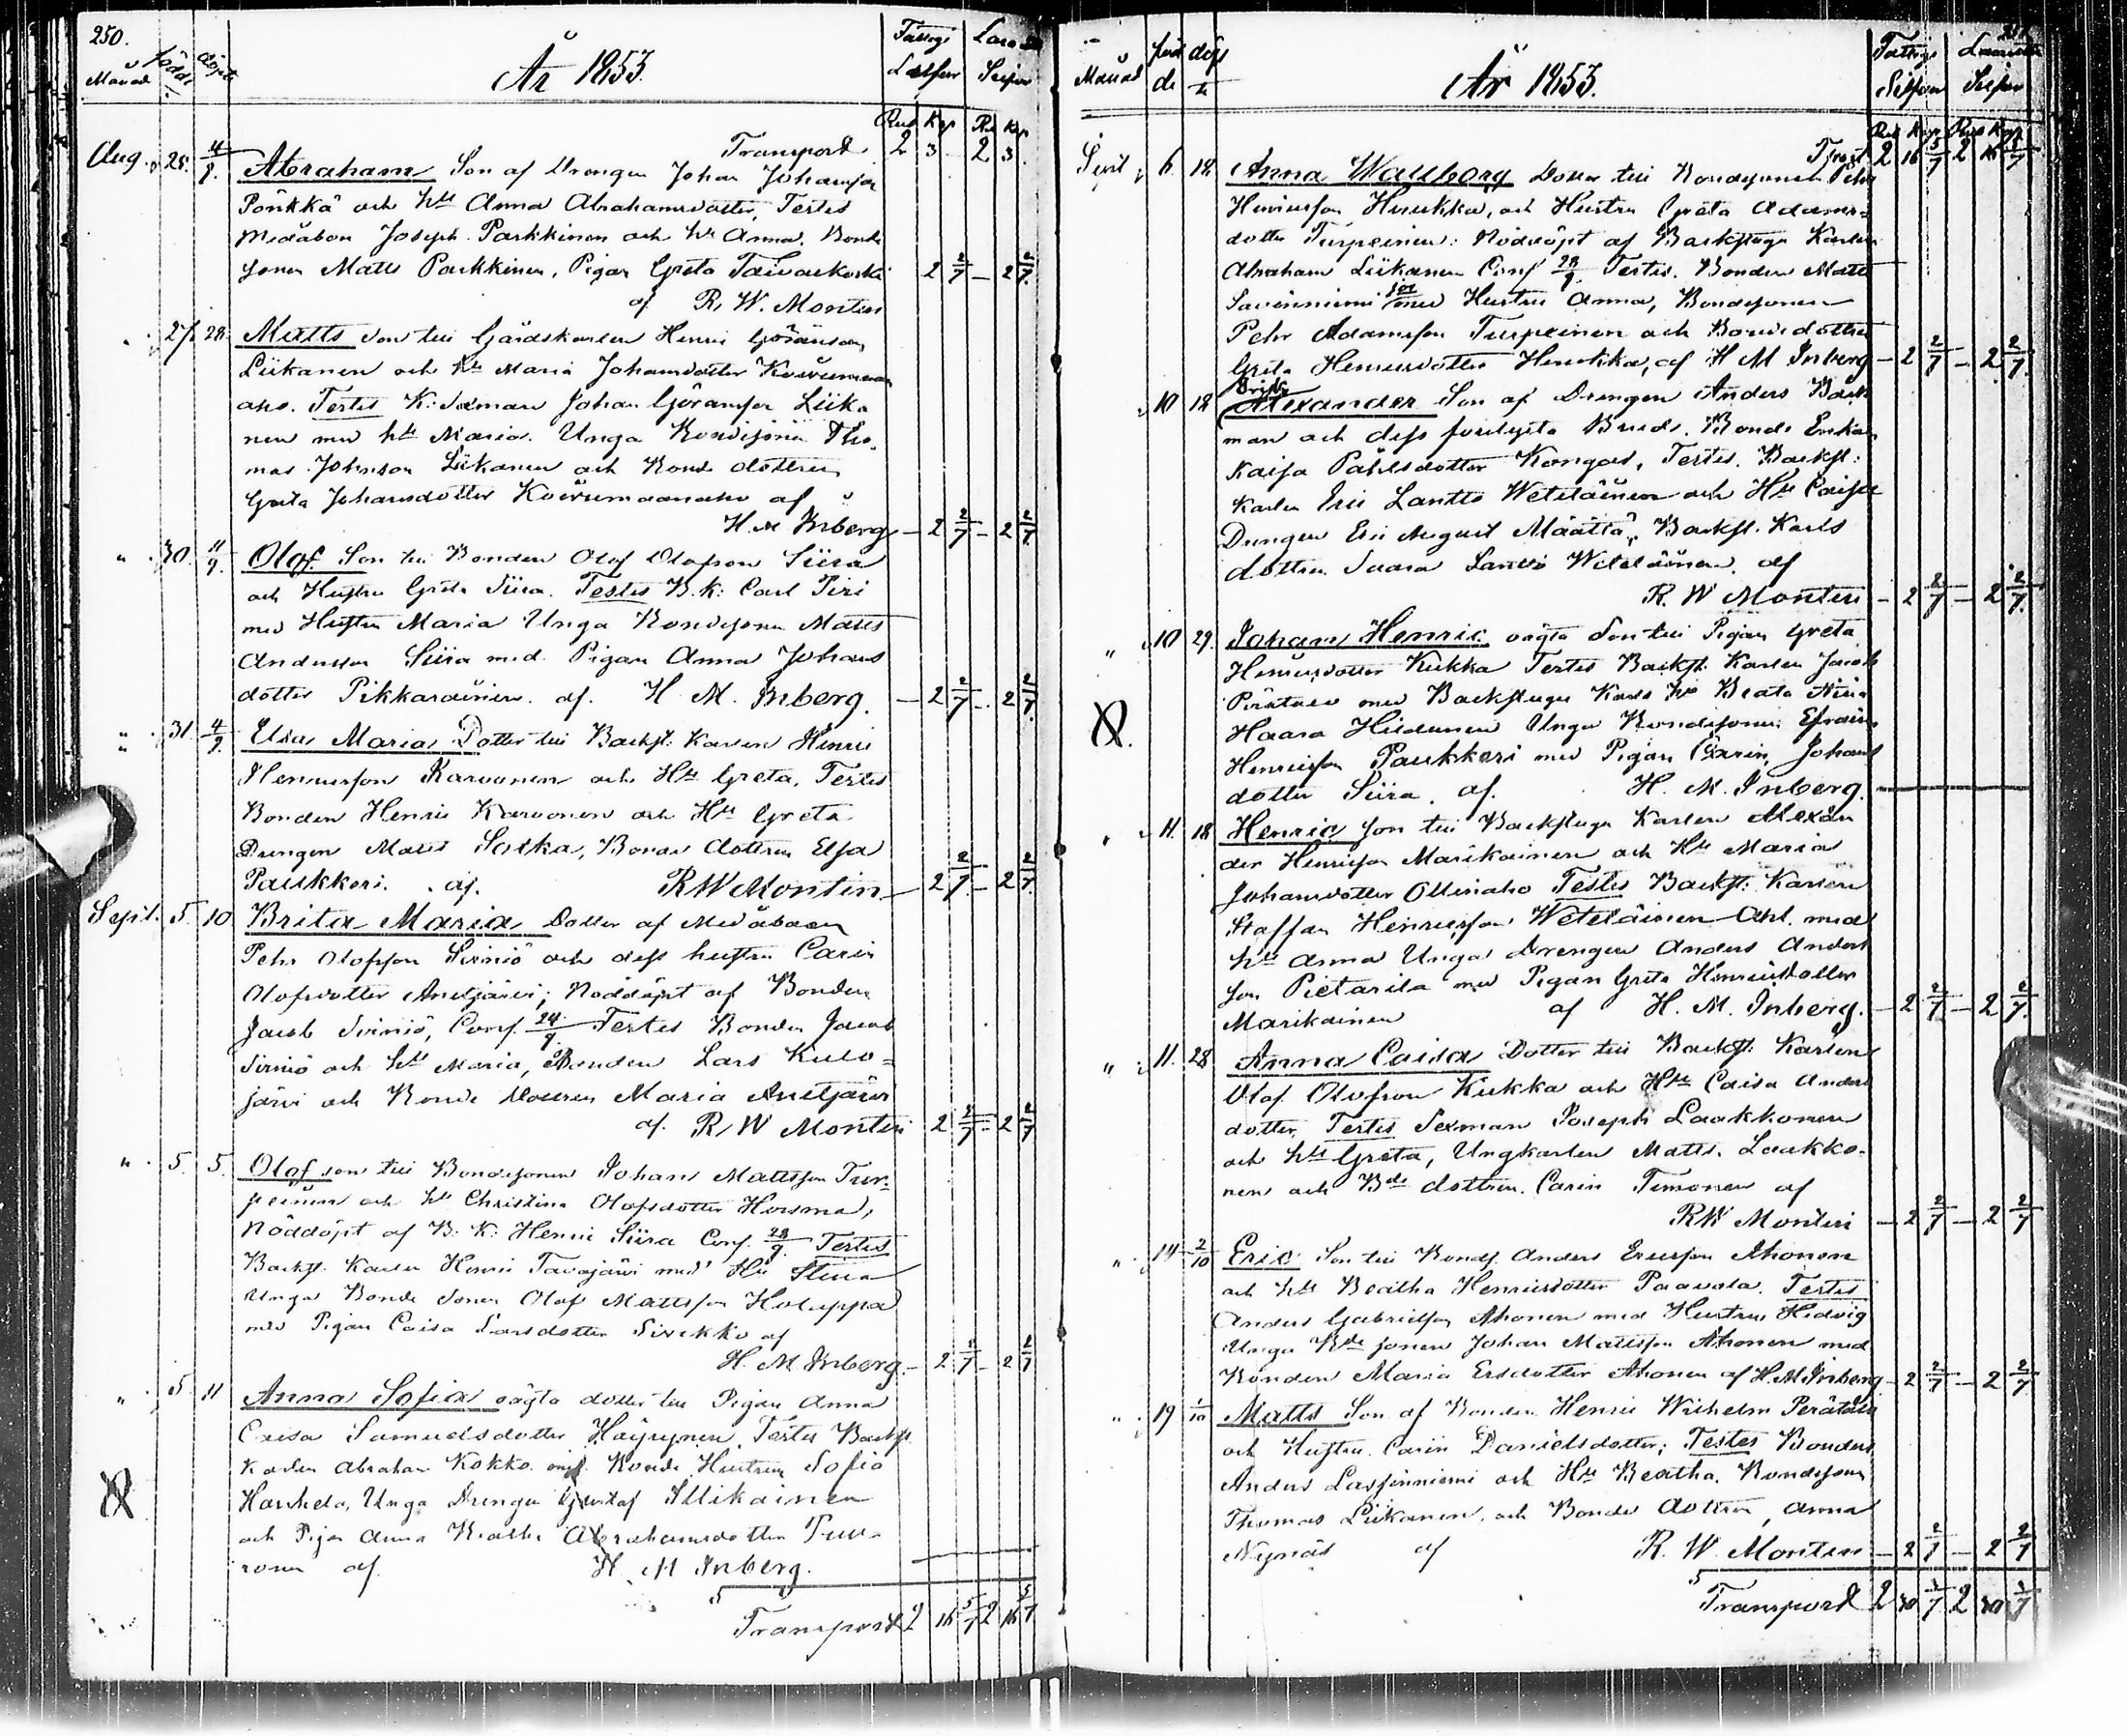 250.
Månad födde döpte
År 1853.
Fattigs Lasse
Rub Kop Rub Kop
Transport 2 3 2 3
Aug. 25. 4/9. Abraham Son af Drengen Johan Johansson
Pönkkä och Hu Anna Abrahamsdotter, Testes
Medåbon Joseph Parkkinen och Hu Anna. Bonde
sonen Matts Parkkinen, Pigan Greta Taivalkoski 2 2/7 – 2 2/7
af R. W. Montin
" 27 28 Matts Son till Gårdskarlen Henric Göransson
Liikanen och Hu Maria Johansdotter
aho. Testes K: Sexman Johan Göransson Liika
nen med hu Maria. Unga Bondesonen Tho
mas Johnson Liikanen och Bonde dottren
Greta Johansdotter af
H. M Inberg – 2 2/7 – 2 2/7
" 30. 11/9. Olof Son till Bonden Olof Olofson Siira
och Hustru Greta Siira. Testes B. K: Carl Piri
med Hustru Maria Unga Bondesonen Matts
Andersson Siira med Pigan Anna Johans
dotter Pikkarainen. af. H. M. Inberg. – 2 2/7 – 2 2/7
" 31. 4/9. Elsa Maria Dotter till Backst. Karlen Henric
Henricsson Karvonen och Hu Greta, Testes
Bonden Henric Karvonen och Hu Greta
Drengen Matts Sotka, Bonde dottren Elsa
Paukkeri. af. R W Montin – 2 2/7 – 2 2/7
Sept. 5 10 Brita Maria Dotter af Medåboen
Pehr Olofsson Sirniö och dess hustru Carin
Olofsdotter Anetjärvi; Nöddöpt af Bonden
Jacob Sirniö, Conf. 24/9 Testes Bonden Jacob
Sirniö och hu Maria, Bonden Lars Kulo-
järvi och Bonde dottren Maria Anetjärvi
af. R. W Montin 2 2/7 – 2 2/7
" 5. 5. Olof son till Bondesonen Johan Mattsson Tur-
peinen och hu Christina Olofsdotter Hosma,
Nöddöpt af B. K: Henric Siira Conf. 28/9. Testes
Backst. Karlen Henric Tavajärvi med Hu Stina
Unga Bonde Sonen Olof Mattsson Holappa
med Pigan Caisa Larsdotter Sirkko af
H. M Inberg. – 2 2/7 – 2 2/7
" 5 11 Anna Sofia oägta dotter till Pigan Anna
Caisa Samuelsdotter Häyrynen, Testes Backst
Karlen Abraham Kokko med Bonde Hustrun Sofia
Haukela, Unga Drengen Gustaf Illikainen
och Pigan Anna Beatha Abrahamsdotter Tuo-
ronen af H. M Inberg.
Transport 2 16 5/7 2 16 5/7
251
Månad föd de döp te
År 1853.
Rub Kop Rub Kop
Trspt. 2 16 5/7 2 16 5/7
Sept 6 18 Anna Wallborg Dotter till Bondesonen Pehr
Henricsson Heikka, och Hustru Greta Adams-
dotter Turpeinen: Nöddöpt af Backstugu Karlen
Abraham Liikanen Conf 28/9 Testes. Bonden Matts
Savinniemi med Hustru Anna, Bondesonen
Pehr Adamsson Turpeinen och Bondedottren
Greta Henricsdotter Heikka, af H M Inberg – 2 2/7 – 2 2/7
" 10 18 Alexander Son af Drengen Anders Back
man och dess förlofvta Brud. Bonde Enkan
Kaisa Påhlsdotter Kongas, Testes. Backst:
Karlen Eric Lantto Weteläinen och Hu Caisa
Drengen Eric August Määttä, Backst. Karls
dottren Saara Lantto Weteläinen. af
R. W Montin – 2 2/7 – 2 2/7
" 10 29. Johan Henric oägta Son till Pigan Greta
Henricsdotter Kukka Testes Backst. Karlen Jacob
Perätalo med Backstugu Karls hu Beata Stina
Haara Hiltunen Unga Bondesonen Efraim
Henricsson Paukkeri med Pigan Carin Johans
dotter Siira. af. H. M. Inberg.
" 11. 18 Henric Son till Backstugu Karlen Alexan
der Henricsson Marikainen och Hu Maria
Johansdotter Ollinaho Testes Backst: Karlen
Staffan Henricsson Weteläinen med
hu Anna Unga Drengen Anders Anders
son Pietarila med Pigan Greta Henricsdotter
Marikainen af H. M. Inberg. – 2 2/7 – 2 2/7
" 11. 28 Anna Caisa Dotter till Backst: Karlen
Olof Olofson Kukka och Hu Caisa Anders
dotter, Testes Sexman Joseph Laakkonen
och hu Greta, Ungkarlen Matts. Laakko-
nen och Bde dottren. Carin Timonen af
R W Montin – 2 2/7 – 2 2/7
" 14 2/10 Eric Son till Bonds. Anders Ericsson Ahonen
och hu Beatha Henricsdotter Paavola. Testes
Anders Gabrielsson Ahonen med Hustru Hedvig
Unga Bde sonen Johan Mattsson Ahonen med
Bonden Maria Ersdotter Ahonen af H. M Inberg – 2 2/7 – 2 2/7
" 19 1/10 Matts Son af Bonden Henric Wilhelm Perätalo
och Hustru Carin Danielsdotter; Testes Bonden
Anders Lassinniemi och Hu Beatha. Bondesonen
Thomas Liikanen, och Bonde dottren, Anna
Nynäs af R. W. Montin – 2 2/7 – 2 2/7
Transport 2 30 3/7 2 30 3/7